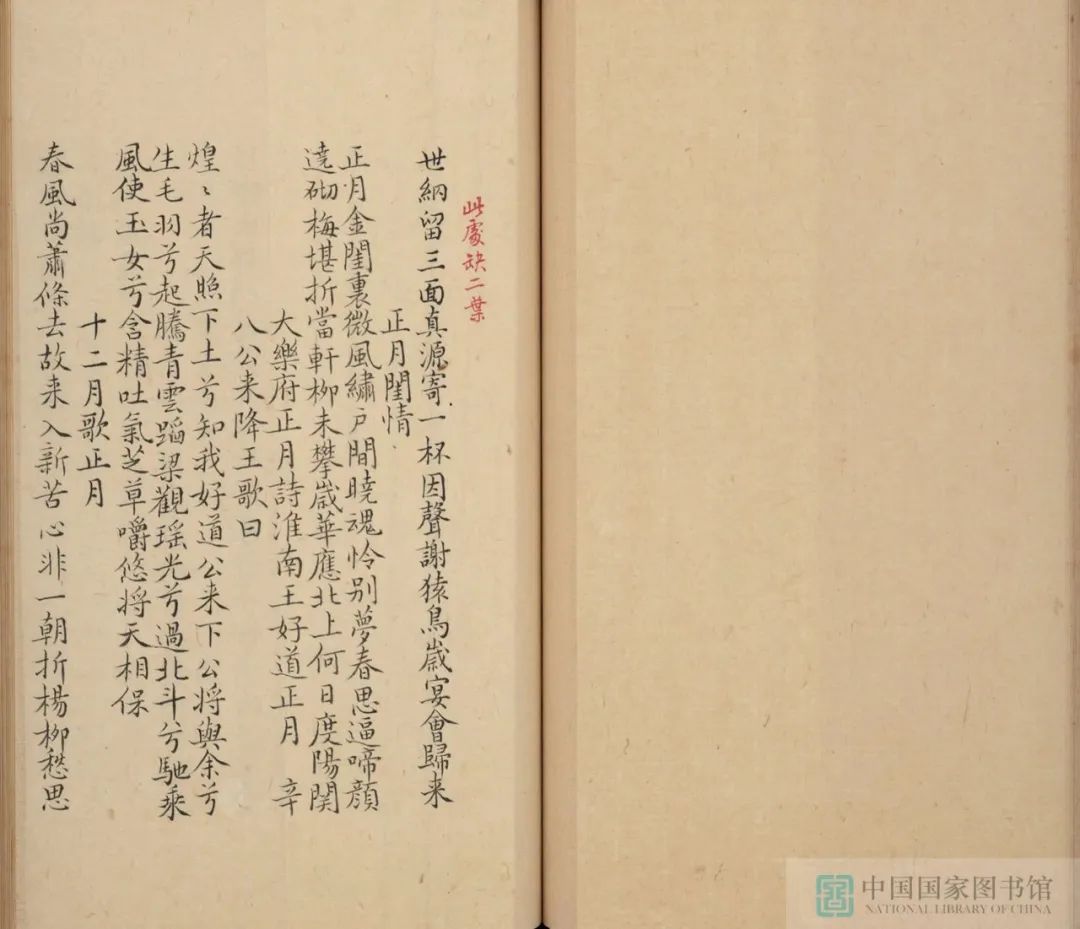 此處缺二葉
世納留三面真源寄一杯因聲謝猿鳥歲宴會歸来
正月閨情
正月金閨裏微風繡戶間曉魂怜别夢春思逼啼顔
遶砌梅堪折當軒柳未攀歲華應北上何日度陽関
大樂府正月詩淮南王好道正月 辛
八公来降王歌曰
煌〻者天照下土兮知我好道公来下公将與余兮
生毛羽兮起騰青雲蹈梁觀瑶光兮過北斗兮馳乘
風使玉女兮含精吐氣芝草嚼悠将天相保
十二月歌正月
春風尚蕭條去故来入新苦心非一朝折楊柳愁思
中国国家图书馆
NATIONAL LIBRARY OF CHINA